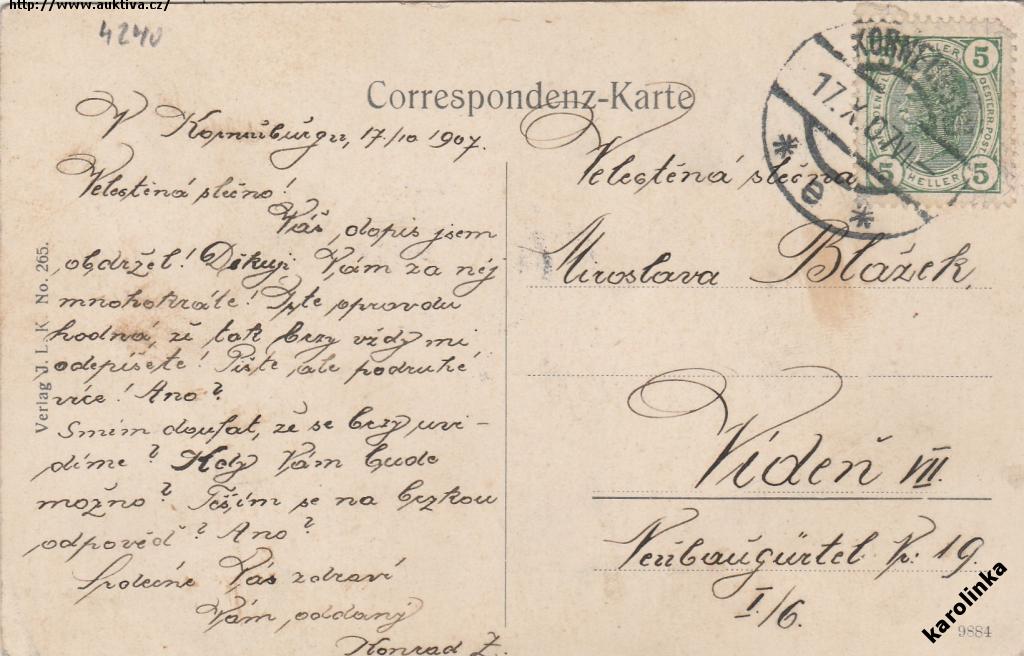 http://www.auktiva.cz/
4240
Correspondenz-Karte
V Korneuburgu, 17/10 1907.
Velectěná slečno!
Váš dopis jsem
obdržel! Děkuji Vám za něj
mnohokráte! Jste opravdu
hodná, že tak brzy vždy mi
odepíšete! Pište ale podruhé
více! Ano?
Smím doufat, že se brzy uvi-
díme? Kdy Vám bude
možno? Těším se na brzkou
odpověď? Ano?
Srdečně Vás zdraví
Vám oddaný
Konrad Z.
Verlag J. L. K. No. 265.
KORNEU
17.X.07
* e *
5 HELLER 5
OESTERR. POST
5 HELLER 5
Velectěná slečna
Miroslava Blážek,
Vídeň VIII.
Neubaugürtel Nr: 19.
I./6.
9884
karolinka